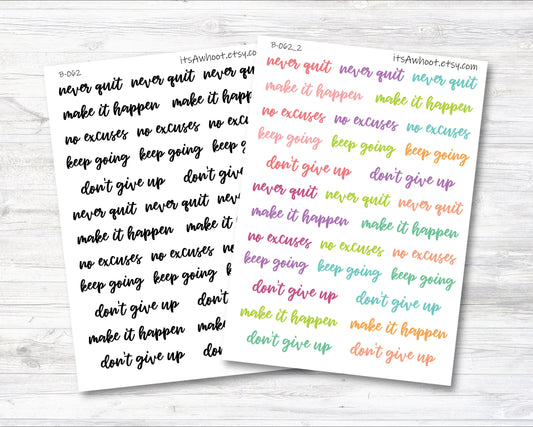 B-062
itsAwhoot.etsy.com
never quit never quit never quit
make it happen make it happen
no excuses no excuses no excuses
keep going keep going keep
don't give up don't give up
never quit never quit never
make it happen make it
no excuses no excuses no
keep going keep going keep
don't give up don't
make it happen make
don't give up don't
B-062_2
itsAwhoot.etsy.com
never quit never quit never quit
make it happen make it happen
no excuses no excuses no excuses
keep going keep going keep going
don't give up don't give up
never quit never quit never quit
make it happen make it happen
no excuses no excuses no excuses
keep going keep going keep going
don't give up don't give up
make it happen make it happen
don't give up don't give up